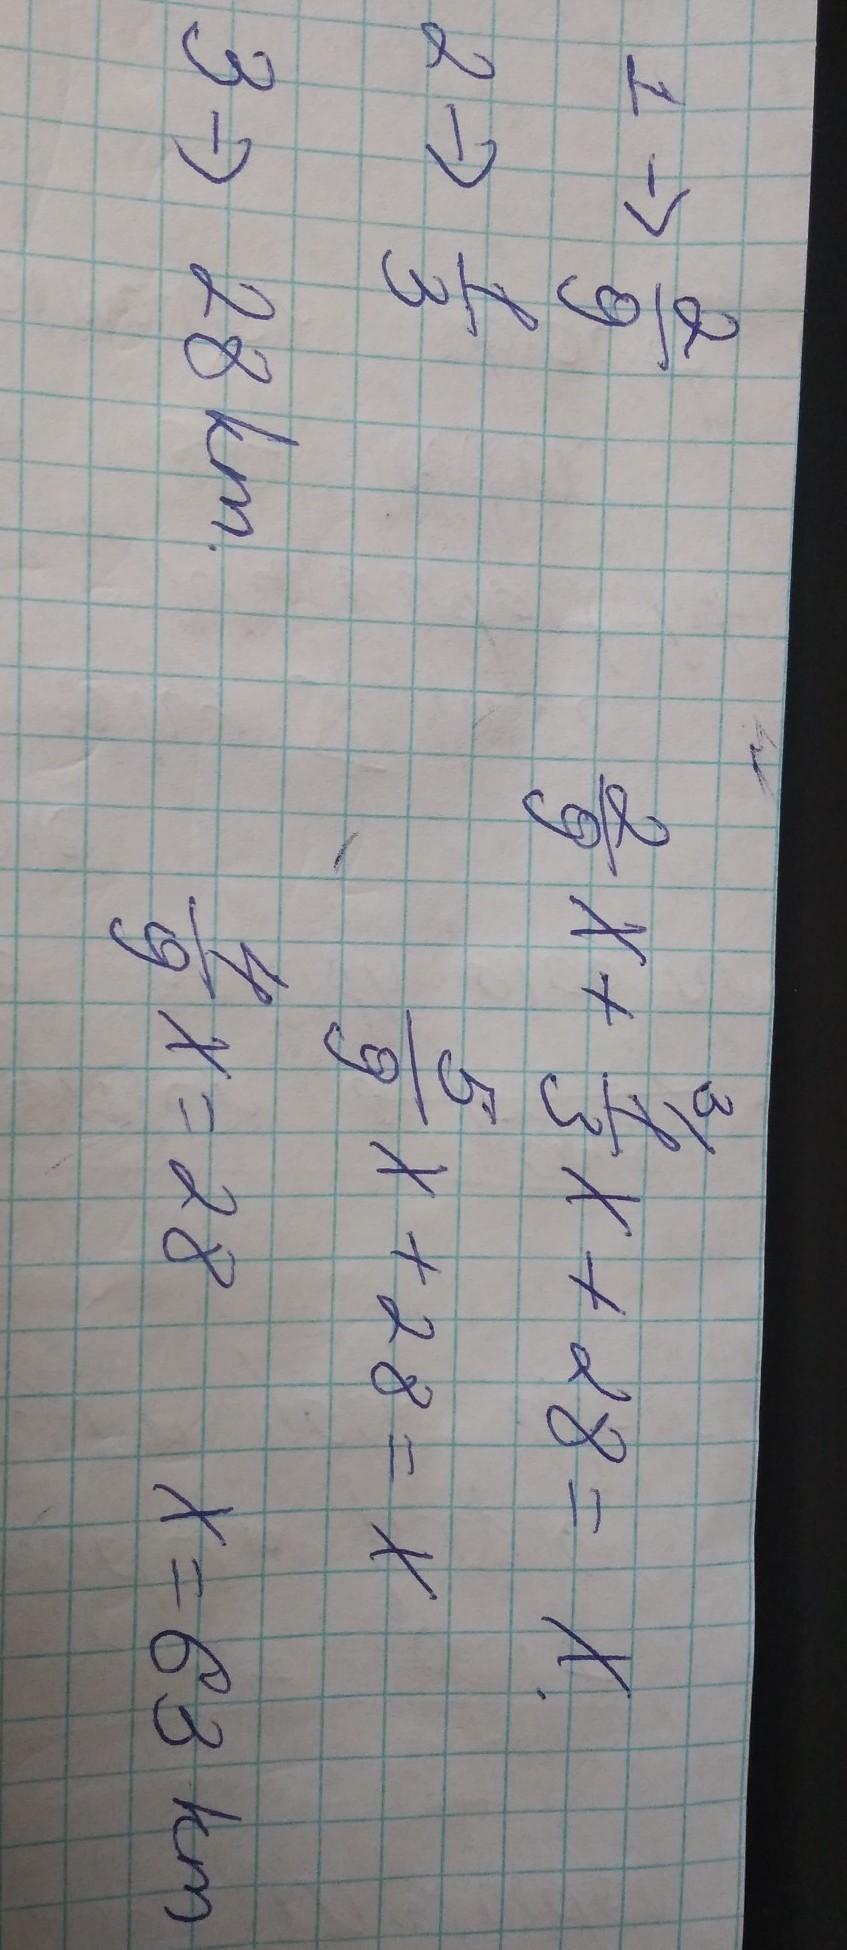 1 → 2/9
2 → 1/3
3 → 28 km.
2/9 x + 3/ 1/3 x + 28 = x.
5/9 x + 28 = x
4/9 x = 28
x = 63 km